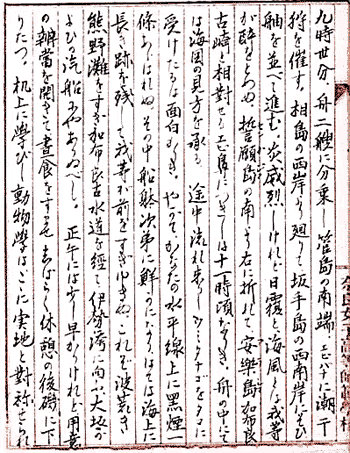 九時世分、舟二艘に分乗し菅島の南端、
狩を催す。相島の西岸より廻て坂手島の西南岸にそひ
舳を並べて進む。炎威烈しけれど日覆と海風とは我等
が酔をとゞめぬ。誓願島の南より右に折れて、安楽島加布良
古崎と相対せる は十一時頃なりき。舟の中にて
は海図の見方を承る。途中流れ来しウミタナゴをタコに
受けたるは面白かりき。やがてかなたの水平線上に黒煙一
條あらはれぬ。その中船体次第に鮮かになりはては海上に
長き跡を残して我等が前をすぎゆきぬ。これぞ波荒き
熊野灘をすぎ加布良古水道を経て伊勢湾に向ふ大坂が
よひの汽船にやあるべし。正午には少し早かりけれど用意
の辨當を開きて昼食をすませ、しばらく休憩の後磯に下
りたつ。机上に學びし動物學はこゝに実地と対称せられ